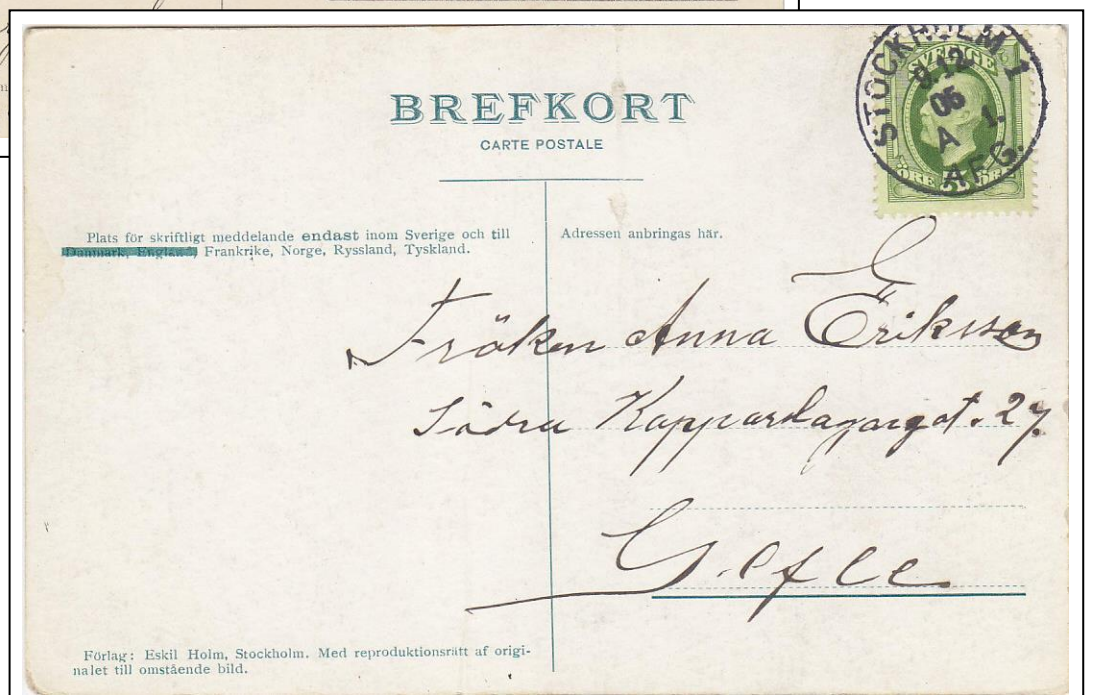 BREFKORT
CARTE POSTALE
STOCKHOLM 1
9.12
06
A 1.
AFG.
SVERIGE
ÖRE ÖRE
Plats för skriftligt meddelande endast inom Sverige och till
Danmark, England, Frankrike, Norge, Ryssland, Tyskland.
Adressen anbringas här.
Fröken Anna Eriksson
Södra Kopparslagargat. 27.
Gefle
Förlag: Eskil Holm, Stockholm. Med reproduktionsrätt af origi-
nalet till omstående bild.